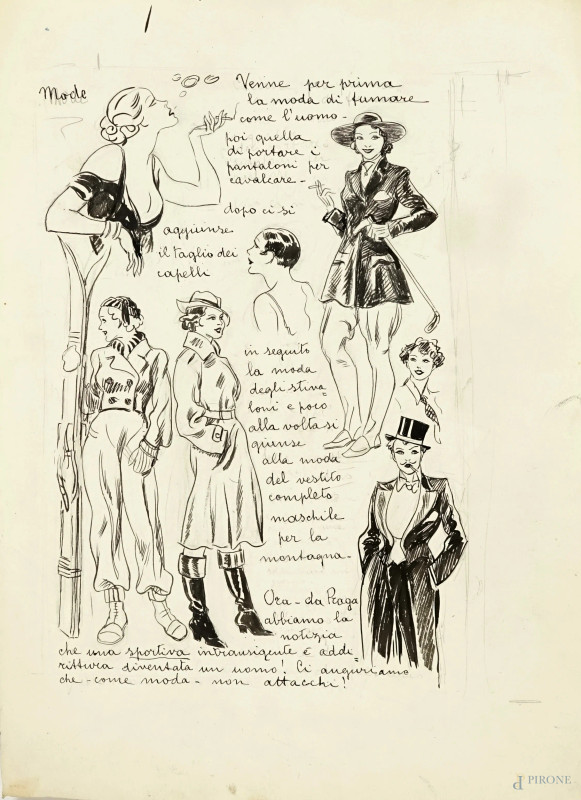 Mode
Venne per prima
la moda di fumare
come l'uomo -
poi quella
di portare i
pantaloni per
cavalcare -
dopo ci si
aggiunse
il taglio dei
capelli
in seguito
la moda
degli stiva
loni e poco
alla volta si
giunse
alla moda
del vestito
completo
maschile
per la
montagna -
Ora - da Praga
abbiamo la
notizia
che una sportiva intransigente è addi=
rittura diventata un uomo! Ci auguriamo
che - come moda - non attacchi!
PIRONE